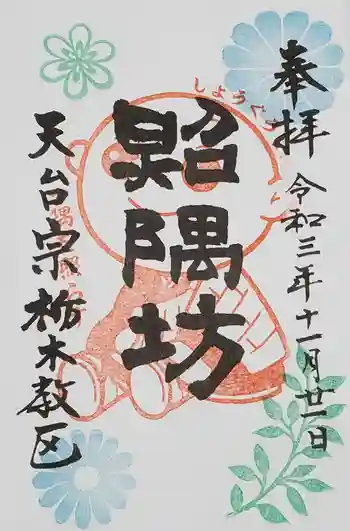 奉拝
令和三年十一月廿一日
しょうぐう
照隅坊
天台宗栃木教区